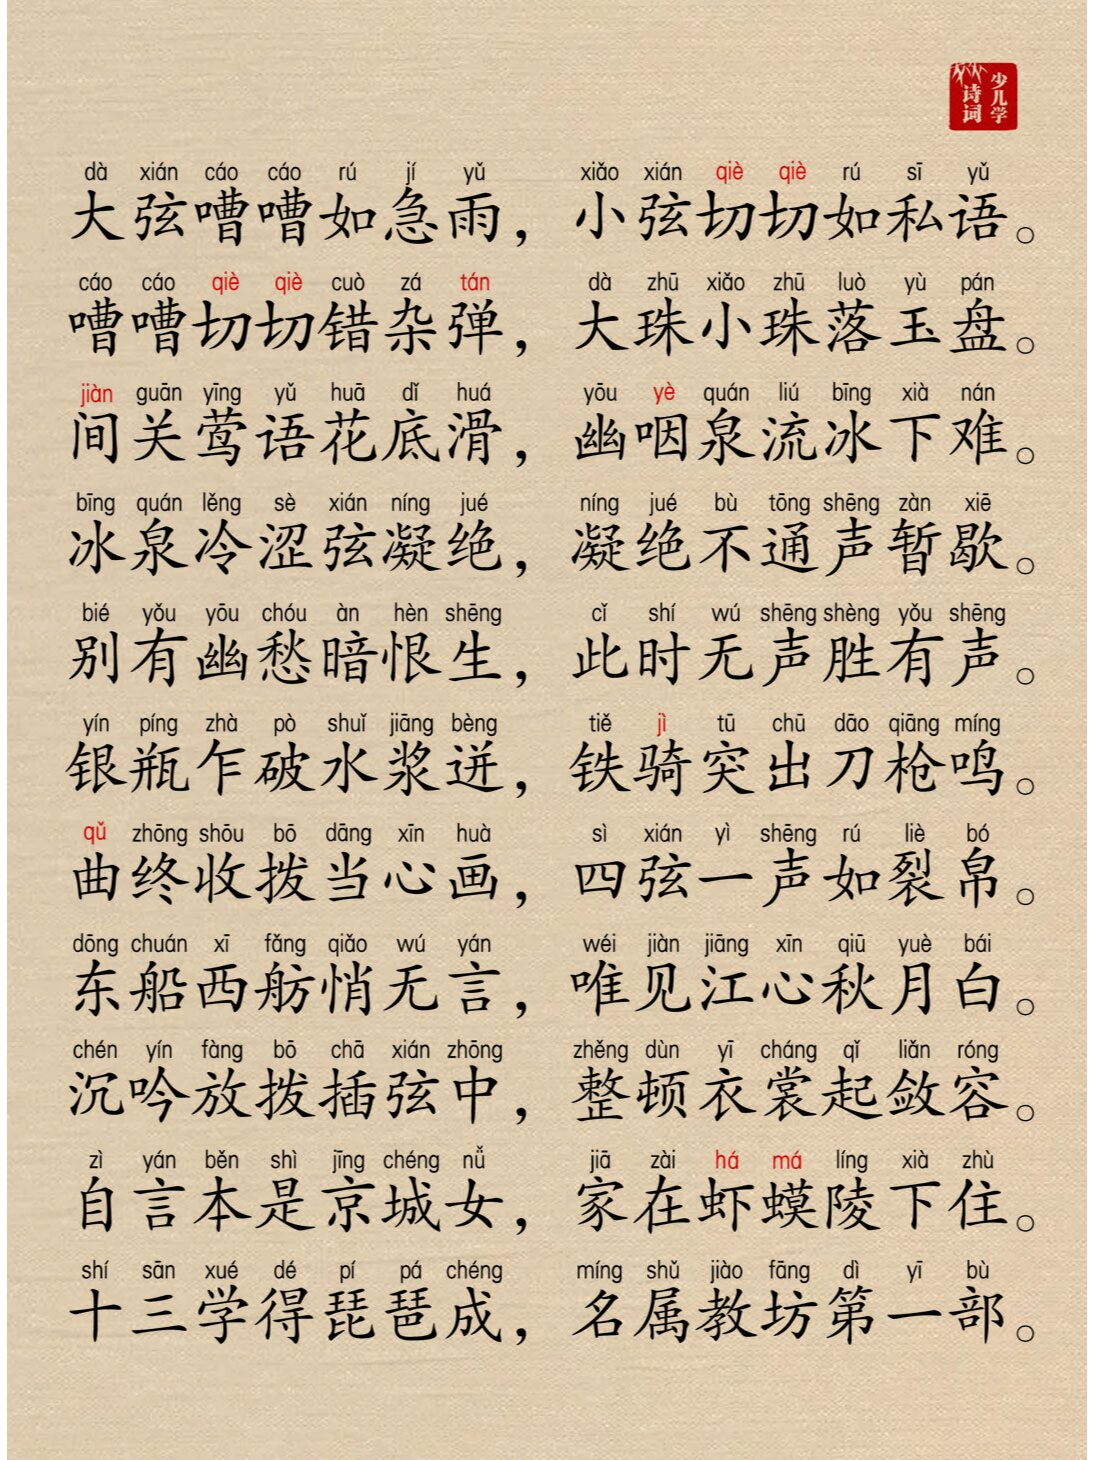 少儿学
诗词
dà xián cáo cáo rú jí yǔ xiǎo xián qiè qiè rú sī yǔ
大弦嘈嘈如急雨，小弦切切如私语。
cáo cáo qiè qiè cuò zá tán dà zhū xiǎo zhū luò yù pán
嘈嘈切切错杂弹，大珠小珠落玉盘。
jiàn guān yīng yǔ huā dǐ huá yōu yè quán liú bīng xià nán
间关莺语花底滑，幽咽泉流冰下难。
bīng quán lěng sè xián níng jué níng jué bù tōng shēng zàn xiē
冰泉冷涩弦凝绝，凝绝不通声暂歇。
bié yǒu yōu chóu àn hèn shēng cǐ shí wú shēng shèng yǒu shēng
别有幽愁暗恨生，此时无声胜有声。
yín píng zhà pò shuǐ jiāng bèng tiě jì tū chū dāo qiāng míng
银瓶乍破水浆迸，铁骑突出刀枪鸣。
qǔ zhōng shōu bō dāng xīn huà sì xián yì shēng rú liè bó
曲终收拨当心画，四弦一声如裂帛。
dōng chuán xī fǎng qiǎo wú yán wéi jiàn jiāng xīn qiū yuè bái
东船西舫悄无言，唯见江心秋月白。
chén yín fàng bō chā xián zhōng zhěng dùn yī cháng qǐ liǎn róng
沉吟放拨插弦中，整顿衣裳起敛容。
zì yán běn shì jīng chéng nǚ jiā zài há má líng xià zhù
自言本是京城女，家在虾蟆陵下住。
shí sān xué dé pí pá chéng míng shǔ jiào fāng dì yī bù
十三学得琵琶成，名属教坊第一部。